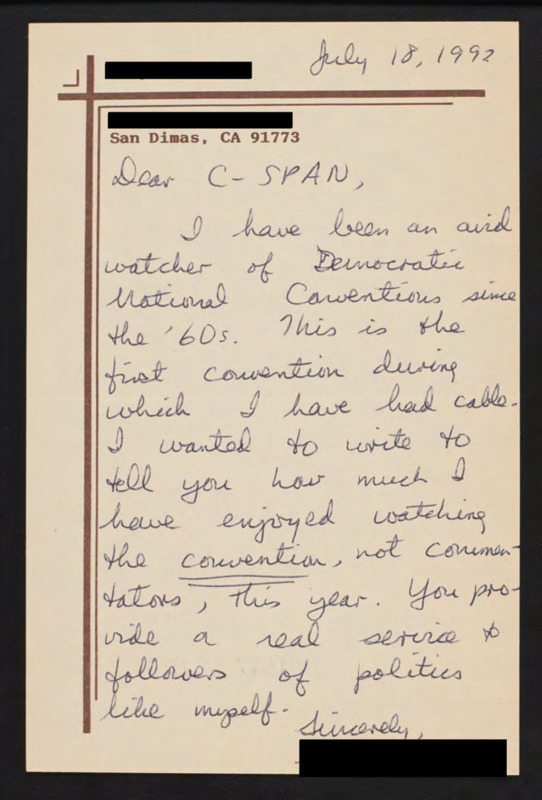 July 18, 1992
San Dimas, CA 91773
Dear C-SPAN,
I have been an avid
watcher of Democratic
National Conventions since
the '60s. This is the
first convention during
which I have had cable.
I wanted to write to
tell you how much I
have enjoyed watching
the convention, not commen-
tators, this year. You pro-
vide a real service to
followers of politics
like myself.
Sincerely,